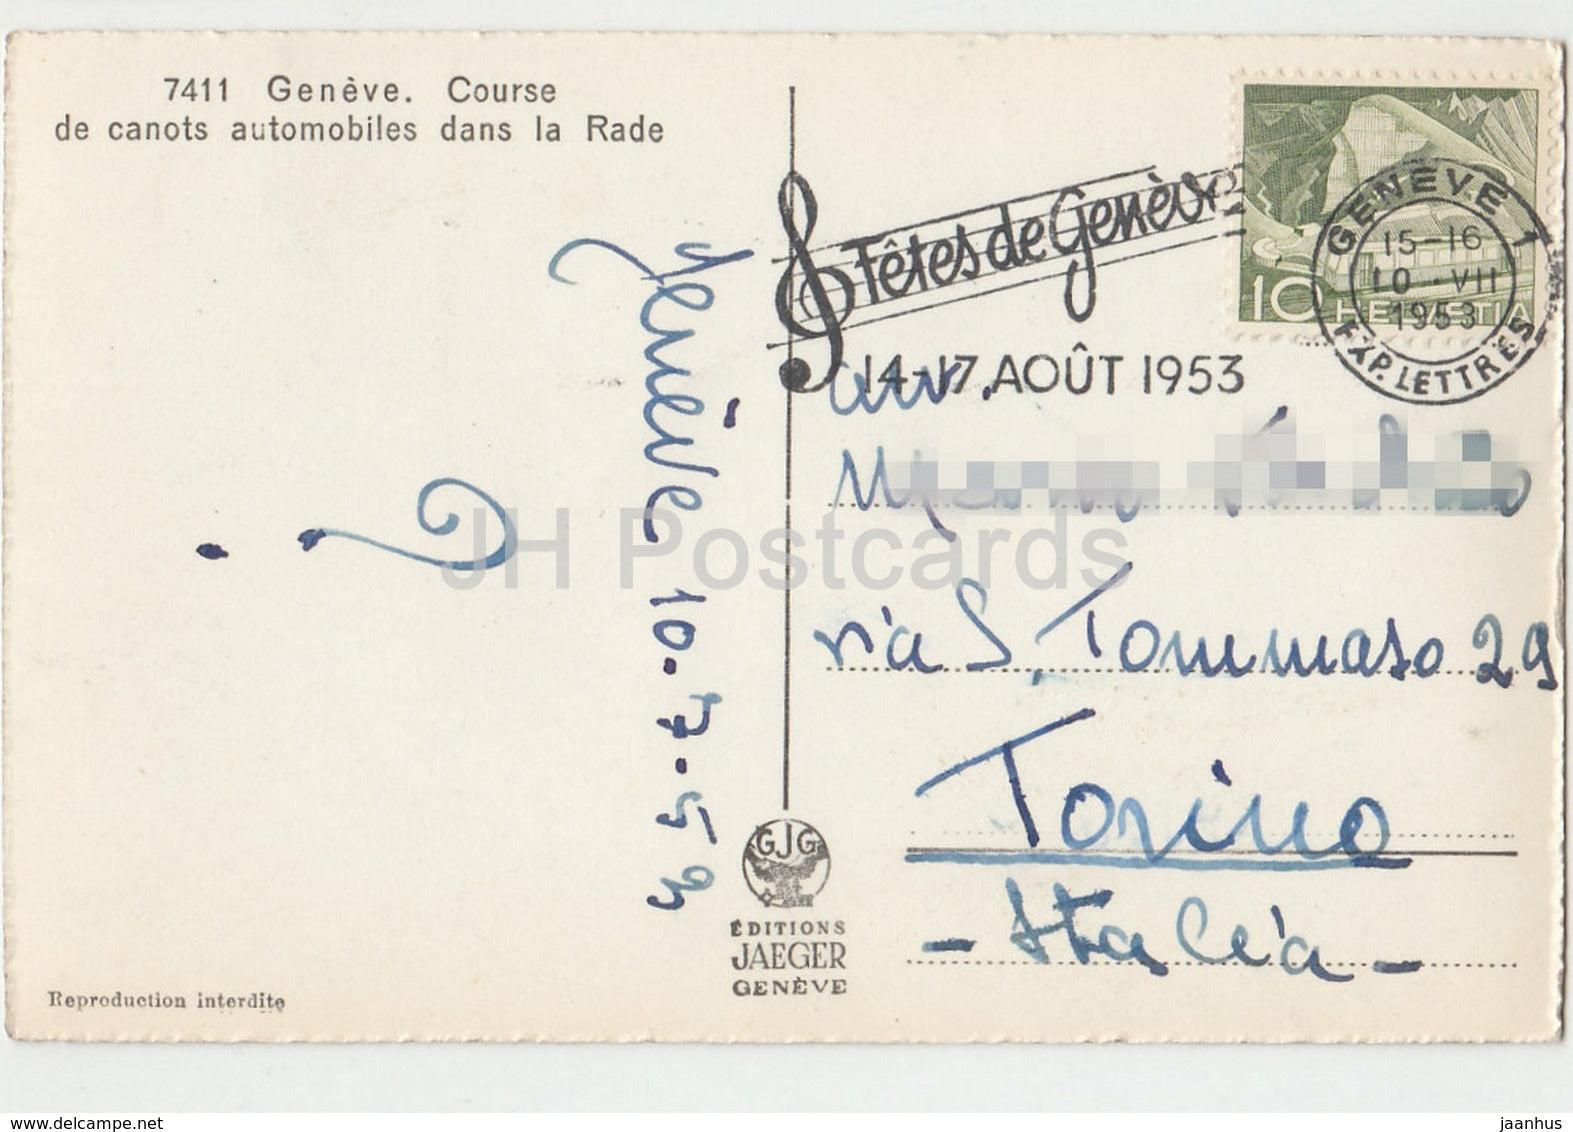 7411 Genève. Course
de canots automobiles dans la Rade
Fêtes de Genève
14-17. AOÛT 1953
GENÈVE 1
15-16
10 · VII
1953
EXP. LETTRES
10 HELVETIA
Genève 10-7-53
via S. Tommaso 29
Torino
- Italia -
GJG
ÉDITIONS
JAEGER
GENÈVE
Reproduction interdite
JH Postcards
www.delcampe.net
jaanhus